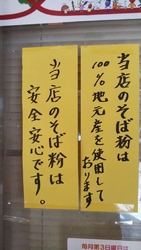 当店のそば粉は
100%地元産を使用して
おります
当店のそば粉は
安全安心です。
毎月第3日曜日は